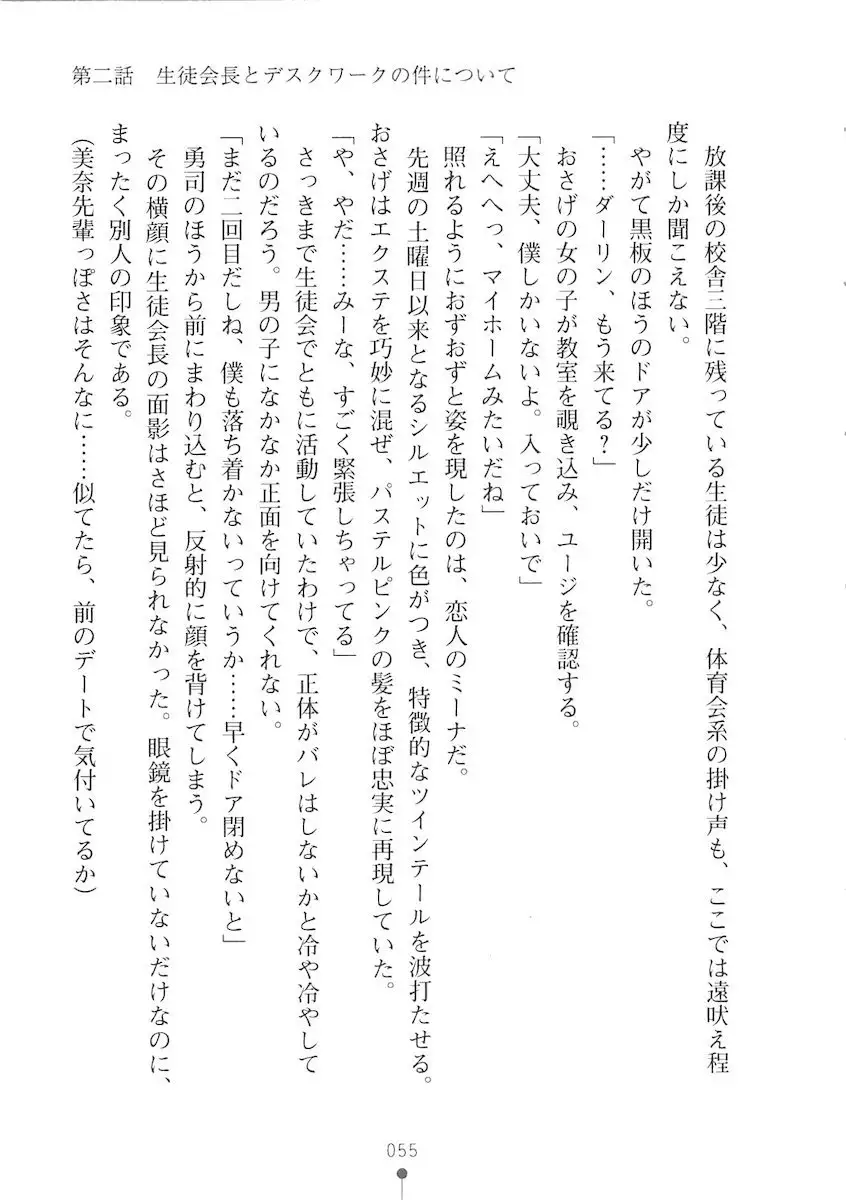 第二話　生徒会長とデスクワークの件について
　放課後の校舎三階に残っている生徒は少なく、体育会系の掛け声も、ここでは遠吠え程
度にしか聞こえない。
　やがて黒板のほうのドアが少しだけ開いた。
「……ダーリン、もう来てる？」
　おさげの女の子が教室を覗き込み、ユージを確認する。
「大丈夫、僕しかいないよ。入っておいで」
「えへへっ、マイホームみたいだね」
　照れるようにおずおずと姿を現したのは、恋人のミーナだ。
　先週の土曜日以来となるシルエットに色がつき、特徴的なツインテールを波打たせる。
おさげはエクステを巧妙に混ぜ、パステルピンクの髪をほぼ忠実に再現していた。
「や、やだ……みーな、すごく緊張しちゃってる」
　さっきまで生徒会でともに活動していたわけで、正体がバレはしないかと冷や冷やして
いるのだろう。男の子になかなか正面を向けてくれない。
「まだ二回目だしね、僕も落ち着かないっていうか……早くドア閉めないと」
　勇司のほうから前にまわり込むと、反射的に顔を背けてしまう。
　その横顔に生徒会長の面影はさほど見られなかった。眼鏡を掛けていないだけなのに、
まったく別人の印象である。
（美奈先輩っぽさはそんなに……似てたら、前のデートで気付いてるか）
055